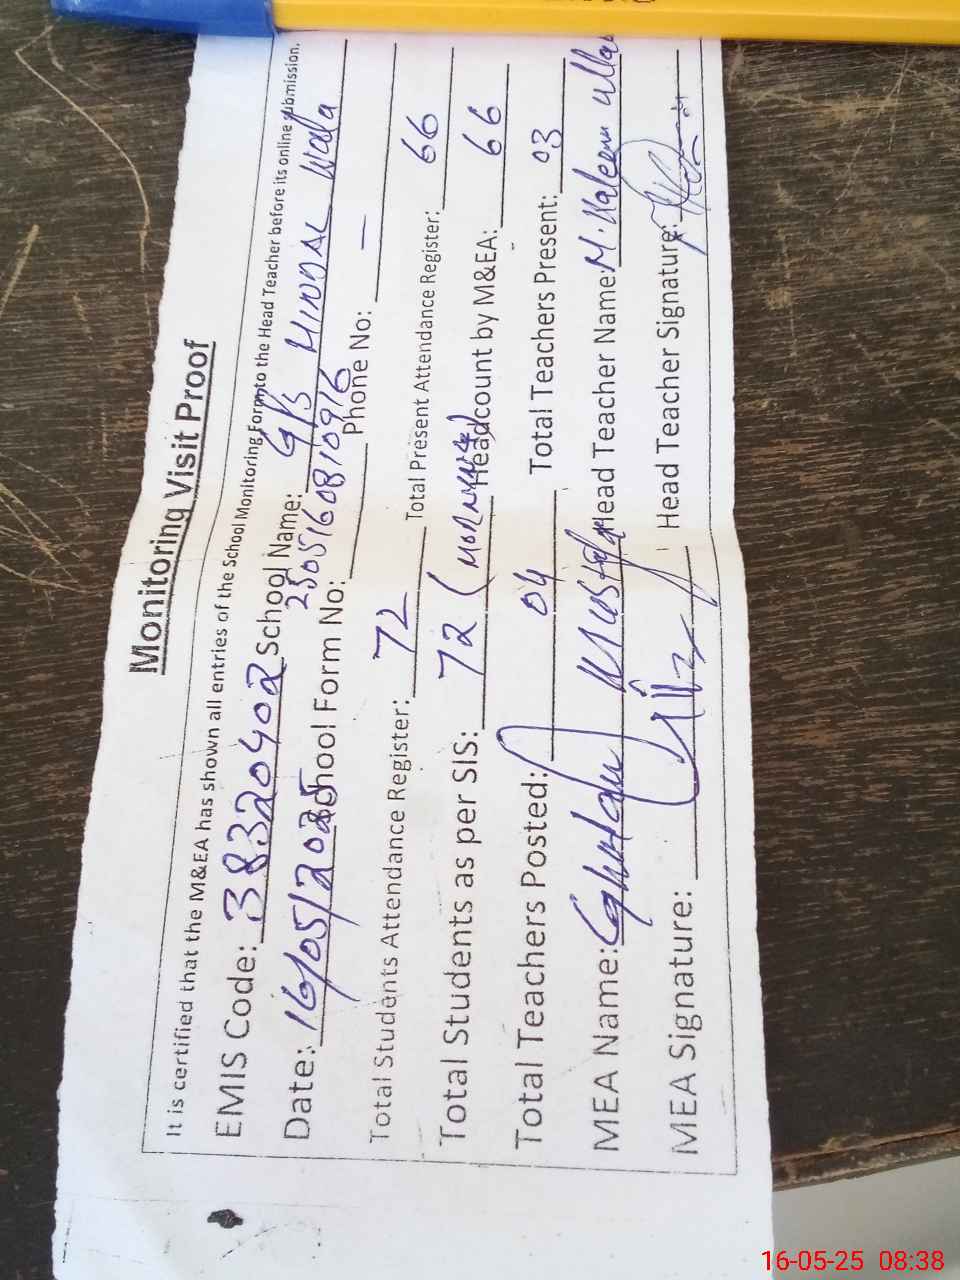 Monitoring Visit Proof
It is certified that the M&EA has shown all entries of the School Monitoring Form to the Head Teacher before its online submission.
EMIS Code: 38320402 School Name: GPS HINDAL Wala
Date: 16/05/2025 School Form No: 2505160810916 Phone No: —
Total Students Attendance Register: 72 Total Present Attendance Register: 66
Total Students as per SIS: 72 (MORNING) Headcount by M&EA: 66
Total Teachers Posted: 04 Total Teachers Present: 03
MEA Name: Ghulam Mustafa Head Teacher Name: M. Kaleem ullah
MEA Signature: Head Teacher Signature:
16-05-25 08:38